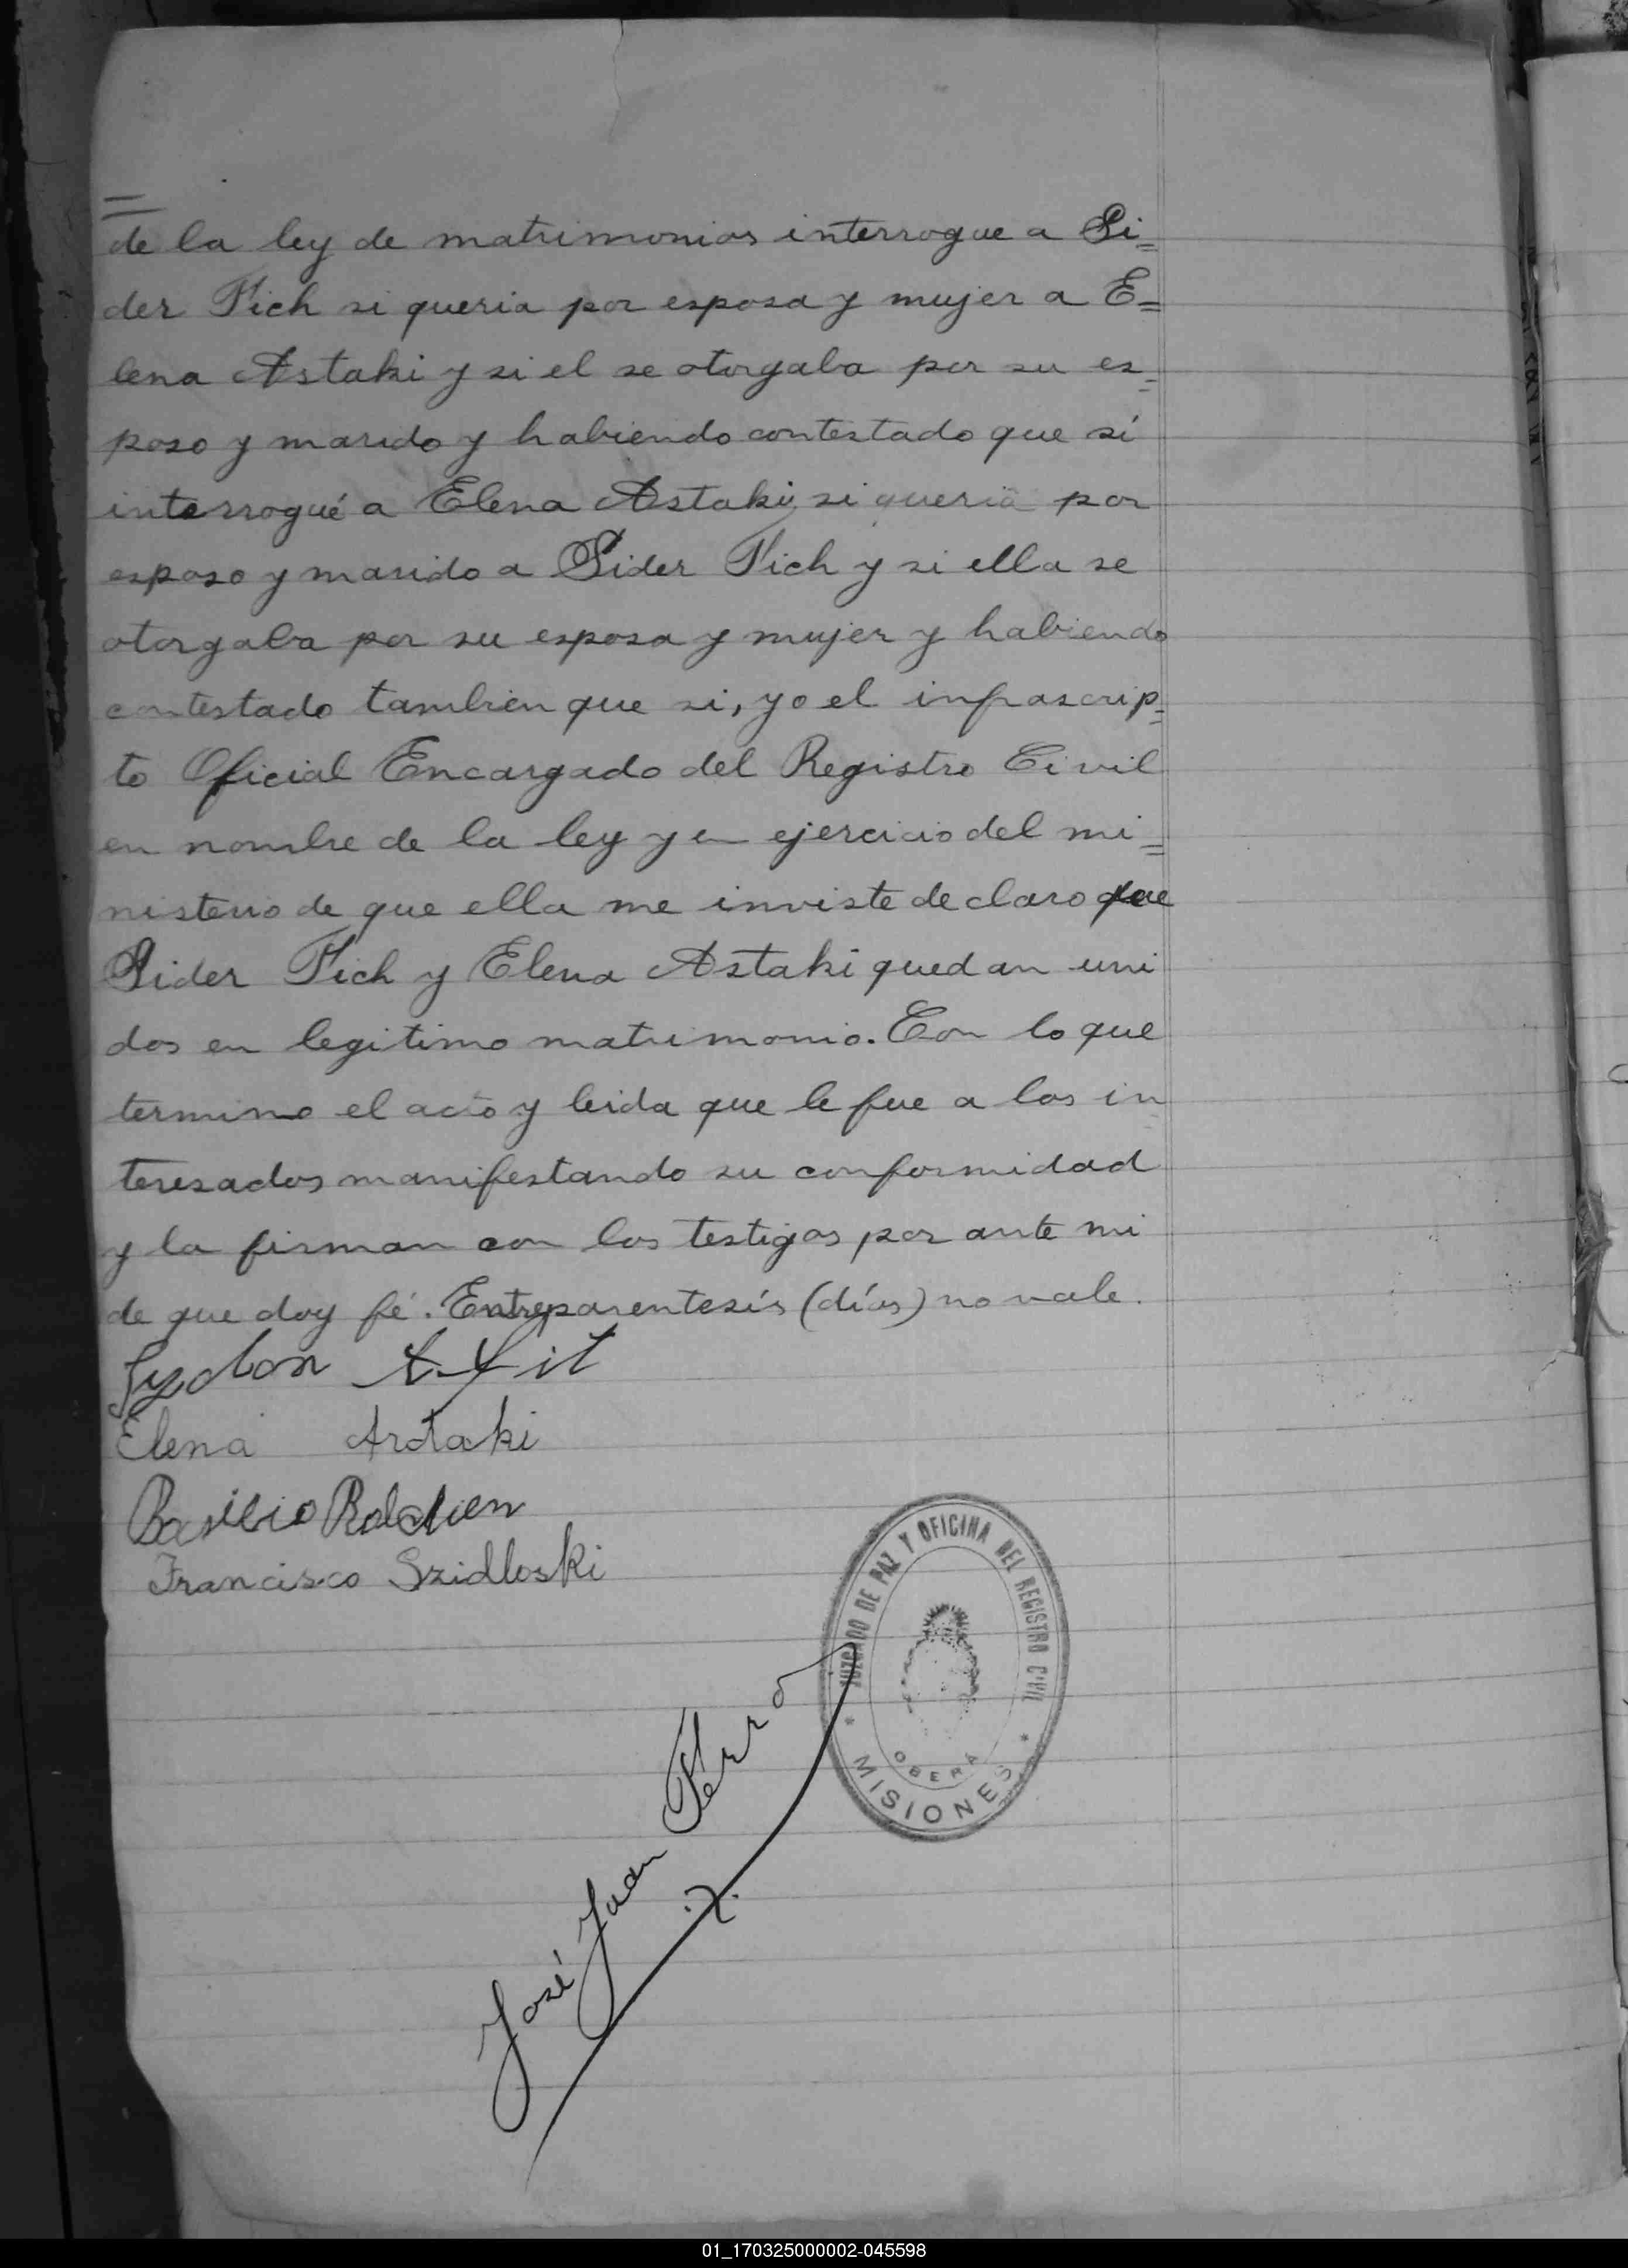 =
de la ley de matrimonios interrogue a Si=
der Fich si queria por esposa y mujer a E=
lena Astaki y si el se otorgaba por su es=
poso y marido y habiendo contestado que sí
interrogué a Elena Astaki, si queria por
esposo y marido a Sider Fich y si ella se
otorgaba por su esposa y mujer y habiendo
contestado tambien que si, yo el infrascrip=
to Oficial Encargado del Registro Civil
en nombre de la ley y en ejercicio del mi=
nisterio de que ella me inviste declaro que
Sider Fich y Elena Astaki quedan uni
dos en legitimo matrimonio. Con lo que
termino el acto y leida que le fue a los in
teresados manifestando su conformidad
y la firman con los testigos por ante mi
de que doy fé. Entreparentesís (días) no vale.
Elena Astaki
Basilio
Francisco Szidloski
JUZGADO DE PAZ Y OFICINA DEL REGISTRO CIVIL
OBERA
* MISIONES *
José Juan Ferro
01_170325000002-045598